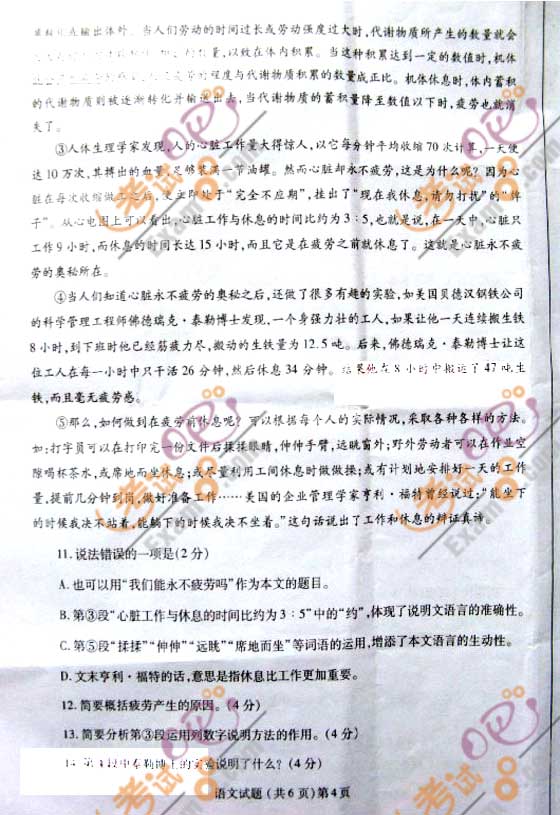 输出体外。当人们劳动的时间过长或劳动强度过大时,代谢物质所产生的数量就会
数量,以致在体内积累。当这种积累达到一定的数值时,机体
程度与代谢物质积累的数量成正比。机体休息时,体内蓄积
的代谢物质则被逐渐转化并输送出去,当代谢物质的蓄积量降至数值以下时,疲劳也就消
失了。
③人体生理学家发现,人的心脏工作量大得惊人,以它每分钟平均收缩70次计算,一天便
达10万次,其搏出的血量,足够装满一节油罐。然而心脏却永不疲劳,这是为什么呢?因为心
脏在每次收缩做工之后,便立即处于“完全不应期”,挂出了“现在我休息,请勿打扰”的“牌
子”。从心电图上可以看出,心脏工作与休息的时间比约为3∶5,也就是说,在一天中,心脏只
工作9小时,而休息的时间长达15小时,而且它是在疲劳之前就休息了。这就是心脏永不疲
劳的奥秘所在。
④当人们知道心脏永不疲劳的奥秘之后,还做了很多有趣的实验,如美国贝德汉钢铁公司
的科学管理工程师佛德瑞克·泰勒博士发现,一个身强力壮的工人,如果让他一天连续搬生铁
8小时,到下班时他已经筋疲力尽,搬动的生铁量为12.5吨。后来,佛德瑞克·泰勒博士让这
位工人在每一小时中只干活26分钟,然后休息34分钟。结果他在8小时中搬运了47吨生
铁,而且毫无疲劳感。
⑤那么,如何做到在疲劳前休息呢?可以根据每个人的实际情况,采取各种各样的方法。
如:打字员可以在打印完一份文件后揉揉眼睛,伸伸手臂,远眺窗外;野外劳动者可以在作业空
隙喝杯茶水,或席地而坐休息;或尽量利用工间休息时做做操;或有计划地安排好一天的工作
量,提前几分钟到岗,做好准备工作……美国的企业管理学家亨利·福特曾经说过:“能坐下
的时候我决不站着,能躺下的时候我决不坐着。”这句话说出了工作和休息的辩证真谛。
11.说法错误的一项是(2分)
A.也可以用“我们能永不疲劳吗”作为本文的题目。
B.第③段“心脏工作与休息的时间比约为3∶5”中的“约”,体现了说明文语言的准确性。
C.第⑤段“揉揉”“伸伸”“远眺”“席地而坐”等词语的运用,增添了本文语言的生动性。
D.文末亨利·福特的话,意思是指休息比工作更加重要。
12.简要概括疲劳产生的原因。(4分)
13.简要分析第③段运用列数字说明方法的作用。(4分)
段中泰勒博士的实验说明了什么?(4分)
语文试题(共6页)第4页